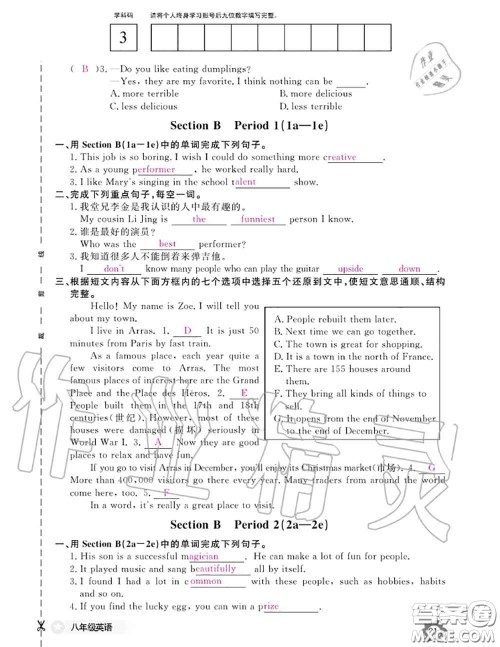 学科码 请将个人终身学习账号后九位数字填写完整。
3
( B )3. —Do you like eating dumplings?
—Yes, they are my favorite. I think nothing can be ____.
A. more terrible B. more delicious
C. less delicious D. less terrible
Section B Period 1(1a—1e)
一、用 Section B(1a—1e)中的单词完成下列句子。
1. This job is so boring. I wish I could do something more creative.
2. As a young performer, he worked really hard.
3. I like Mary's singing in the school talent show.
二、完成下列重点句子,每空一词。
1. 我堂兄李金是我认识的人中最有趣的。
My cousin Li Jing is the funniest person I know.
2. 谁是最好的演员?
Who was the best performer?
3. 我知道很多人不能倒着来弹吉他。
I don't know many people who can play the guitar upside down.
三、根据短文内容从下面方框内的七个选项中选择五个还原到文中,使短文意思通顺、结构
完整。
Hello! My name is Zoe. I will tell you
about my town.
I live in Arras. 1. D It is just 50
minutes from Paris by fast train.
As a famous place, each year quite a
few visitors come to Arras. The most
famous places of interest here are the Grand
Place and the Place des Héros. 2. E
People built them in the 17th and 18th
centuries(世纪). However, most of these
houses were damaged(损坏) seriously in
World War I. 3. A Now they are good
places to relax and have fun.
A. People rebuilt them later.
B. Next time we can go together.
C. The town is great for shopping.
D. It is a town in the north of France.
E. There are 155 houses around
them.
F. They bring all kinds of things to
sell.
G. It opens from the end of November
to the end of December.
If you go to visit Arras in December, you'll enjoy its Christmas market(市场). 4. G
More than 400,000 visitors go there every year. Many traders from around the world
come here. 5. F
In a word, it's really a great place to visit.
Section B Period 2(2a—2e)
一、用 Section B(2a—2e)中的单词完成下列句子。
1. His son is a successful magician. He can make a lot of fun for people.
2. It played music and sang beautifully all by itself.
3. I found I had a lot in common with these people, such as hobbies, habits
and so on.
4. If you find the lucky egg, you can win a prize.
八年级英语